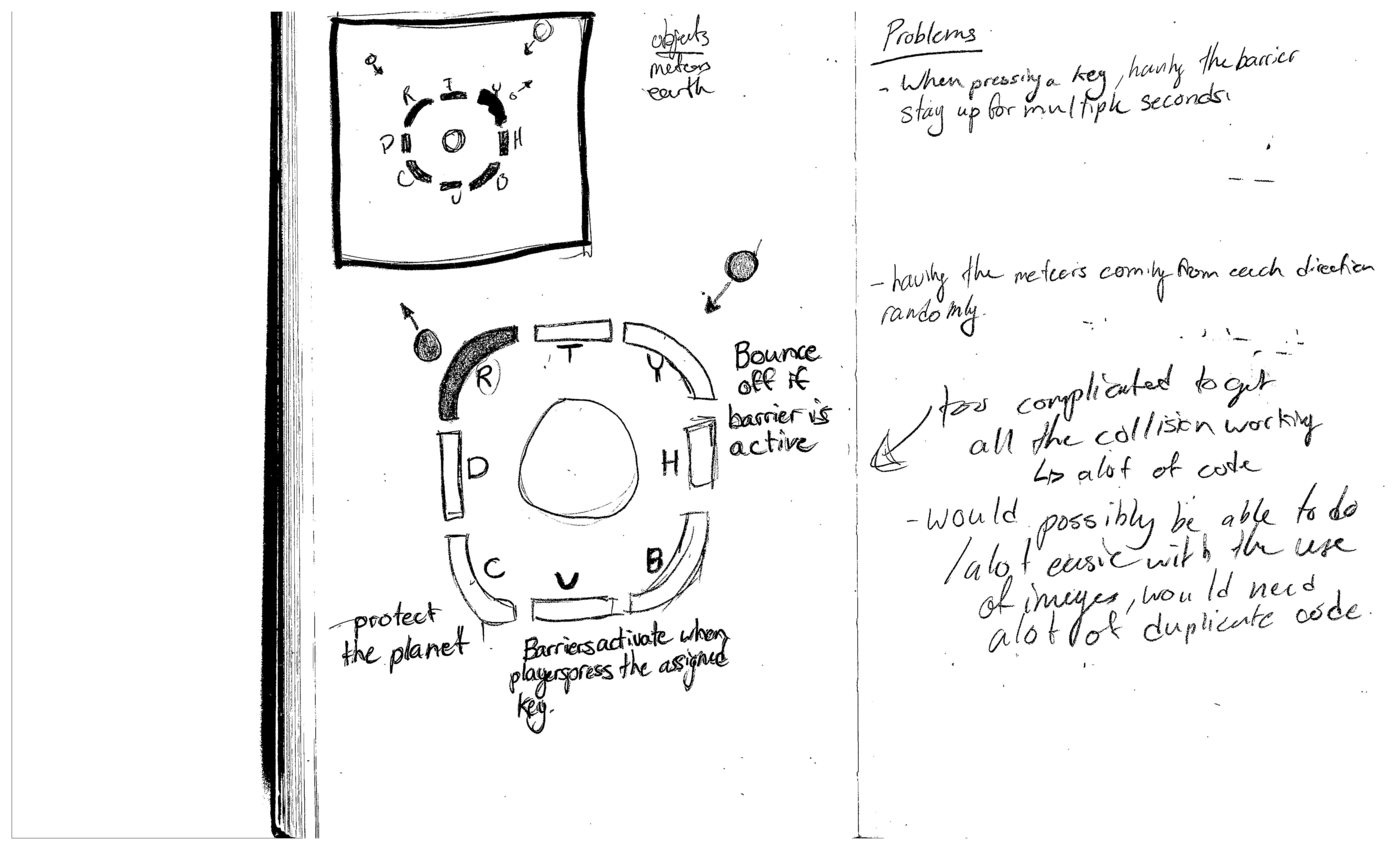 objects
meteors
earth
R
T
Y
D
H
C
B
V
R
T
Y
D
H
C
V
B
Bounce
off if
barrier is
active
protect
the planet
Barriers activate when
players press the assigned
key.
Problems
- When pressing a key, having the barrier
stay up for multiple seconds.
- having the meteors coming from each direction
randomly.
too complicated to get
all the collision working
↳ alot of code
- would possibly be able to do
alot easier with the use
of images, would need
alot of duplicate code.